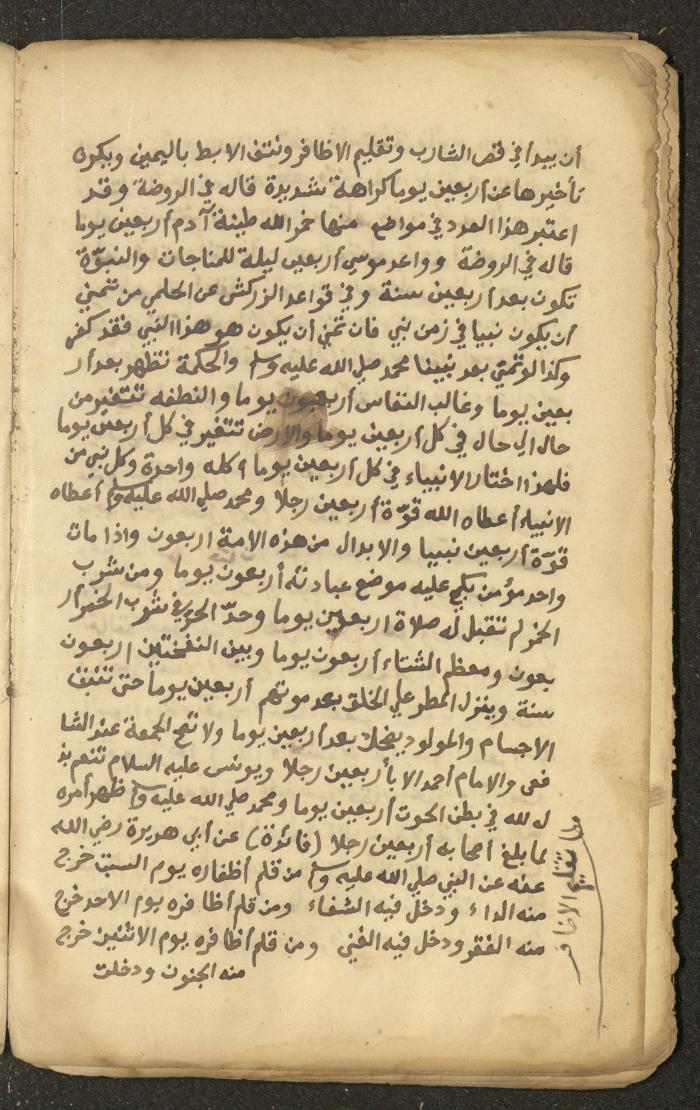 أن يبدأ في قص الشارب وتقليم الاظافر ونتف الابط باليمين ويكره
تأخيرها عن أربعين يوما كراهة شديدة قاله في الروضة وقد
اعتبر هذا العدد في مواضع منها خمر الله طينة آدم أربعين يوما
قاله في الروضة وواعد موسى أربعين ليلة للمناجات والنبوّة
تكون بعد أربعين سنة وفي قواعد الزركشي عن الحلمي من تمني
أن يكون نبيا في زمن نبي فان تمني أن يكون هو هذا النبي فقد كفر
وكذا لو تمني بعد نبينا محمد صلي الله عليه وسلم والحكمة تظهر بعد أر
بعين يوما وغالب النفاس أربعون يوما والنطفه تتغير من
حال الي حال في كل أربعين يوما والارض تتغير في كل أربعين يوما
فلهذا اختار الانبياء في كل أربعين يوما أكله واحدة وكل نبي من
الانبياء أعطاه الله قوّة أربعين رجلا ومحمد صلي الله عليه وسلم أعطاه
قوّة أربعين نبييا والابدال من هذه الامة اربعون واذا مات
واحد مؤمن بكي عليه موضع عبادته أربعون يوما ومن شرب
الخمر لم تقبل له صلاة اربعين يوما وحدّ الحرّ في شرب الخمر أر
بعون ومعظم الشتاء أربعون يوما وبين النفختين اربعون
سنة وينزل المطر علي الخلق بعد موتهم أربعين يوما حتى تنبت
الاجسام والمولود يضحك بعد أربعين يوما ولا تصح الجمعة عند الشا
فعى والامام أحمد الا بأربعين رجلا ويونس عليه السلام تنعم بذ
ل لله في بطن الحوت أربعين يوما ومحمد صلي الله عليه وسلم ظهر أمره
لما بلغ أصحابه أربعين رجلا (فائدة) عن أبي هريرة رضي الله
عنه عن النبي صلي الله عليه وسلم من قلم أظفاره يوم السبت خرج
منه الداء ودخل فيه الشفاء ومن قلم أظافره يوم الاحد خرج
منه الفقر ودخل فيه الغني ومن قلم أظافره يوم الاثنين خرج
منه الجنون ودخلت
تقليم الاظافر